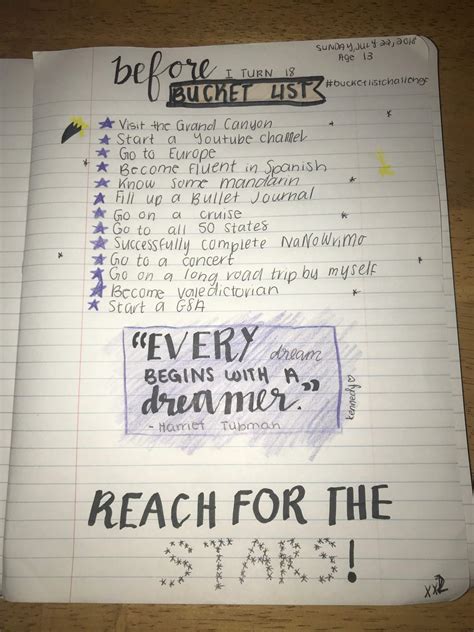 SUNDAY, JULY 22, 2018
Age 13
before I TURN 18
BUCKET LIST #bucketlistchallenge
Visit the Grand Canyon
Start a Youtube channel
Go to Europe
Become fluent in Spanish
Know some mandarin
Fill up a Bullet Journal
Go on a cruise
Go to all 50 States
Successfully complete NaNoWriMo
Go to a concert
Go on a long road trip by myself
Become valedictorian
Start a GSA
"EVERY dream
BEGINS WITH A
dreamer."
- Harriet Tubman
Kennedy♡
REACH FOR THE
STARS!